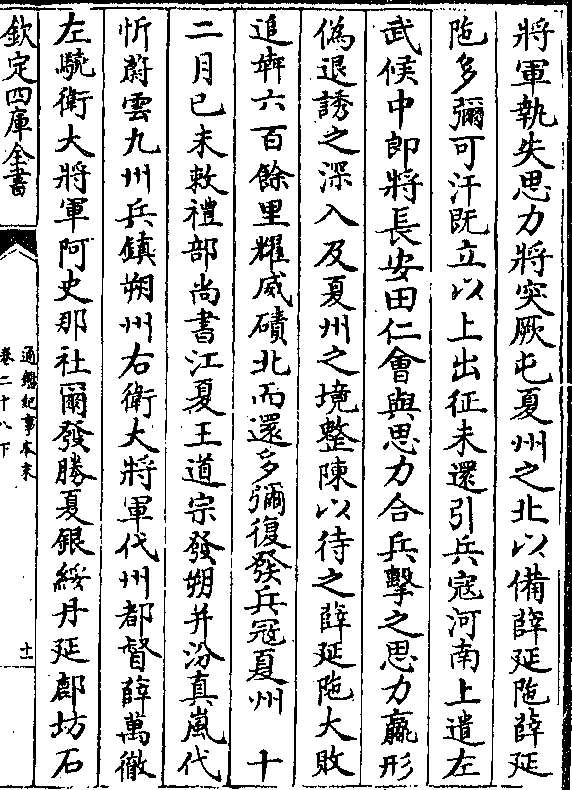 將軍執失思力將突厥屯夏州之北以備薛延陁薛延
陁多彌可汗既立以上出征未還引兵寇河南上遣左
武候中郎將長安田仁會與思力合兵擊之思力羸形
偽退誘之深入及夏州之境整陳以待之薛延陁大敗
追奔六百餘里耀威磧北而還多彌復發兵冠夏州　十
二月已未敕禮部尚書江夏王道宗發朔并汾真嵐代
忻蔚雲九州兵鎮朔州右衛大將軍代州都督薛萬徹
左驍衛大將軍阿史那社爾發勝夏銀綏丹延鄜坊石
欽定四庫全書
通鑑紀事本末
卷二十八下
十一